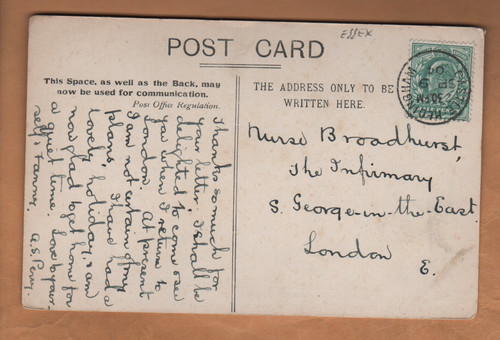 ESSEX
POST CARD
This Space, as well as the Back, may
now be used for communication.
Post Office Regulation.
THE ADDRESS ONLY TO BE
WRITTEN HERE.
Thanks so much for
your letter. I shall be
delighted to come & see
you when I return to
London. At present
I am not certain of my
plans. I have had a
lovely holiday, & am
now glad to get home for
a quiet time. Love to your-
self & Fanny.
A.S.
Nurse Broadhurst,
The Infirmary
S. George-in-the-East
London
E.